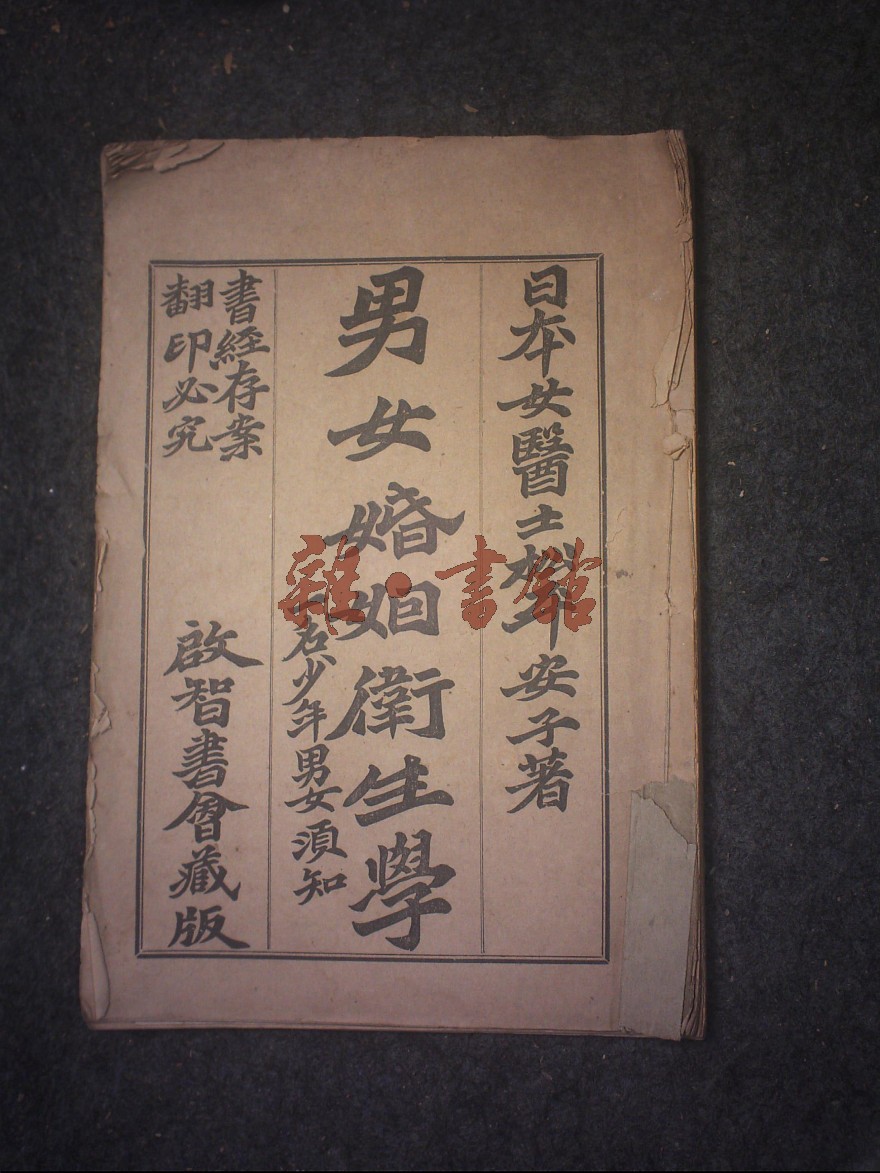 日本女醫士松平安子著
男女婚姻衛生學
一名少年男女須知
書經存案
翻印必究
啟智書會藏版
雜·書館